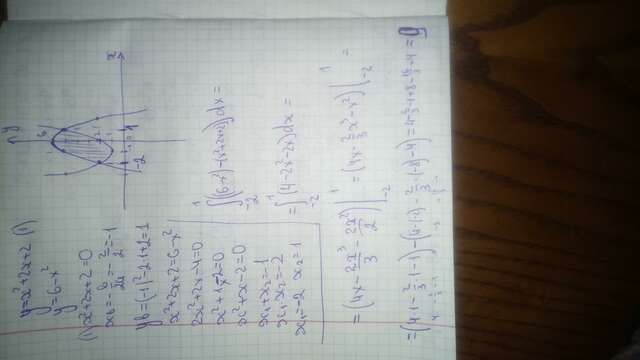 y=x²+2x+2 (1)
y=6-x²
(1) x²+2x+2=0
xв=-b/2a=-2/2=-1
yв=(-1)²-2·1+2=1
x²+2x+2=6-x²
2x²+2x-4=0
x²+1x-2=0
x²+x-2=0
x₁+x₂=-1
x₁·x₂=-2
x₁=-2 x₂=1
y
6
x
-2
1
∫₋₂¹((6-x²)-(x²+2x+2))dx=
=∫₋₂¹(4-2x²-2x)dx=
=(4x-2x³/3-2x²/2)|₋₂¹=(4x-2/3x³-x²)|₋₂¹=
=(4·1-2/3·1-1)-(4·(-2)-2/3·(-8)-4)=4-2/3-1+8-16/3+4=9